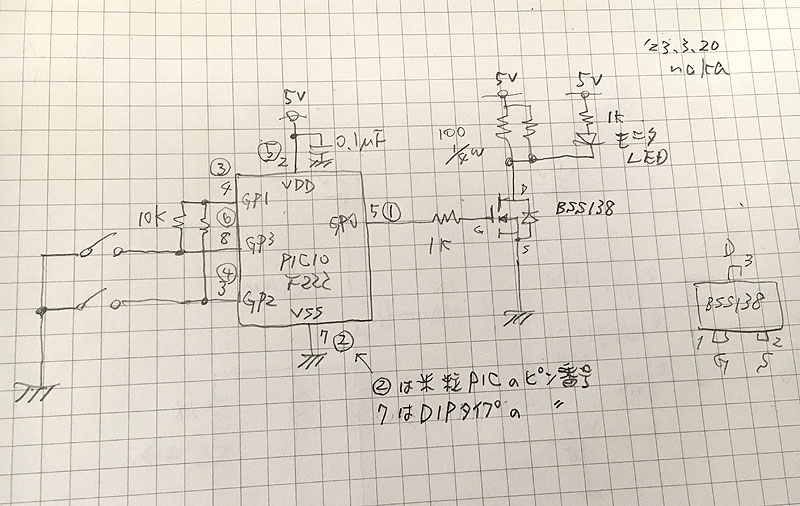 '23.3.20
naka
5V
5V
5V
1K
モニタ
LED
100
1/4W
0.1μF
⑤
2
③
4
VDD
GP1
10K
⑥
8
GP3
GP0
5 ①
1K
D
G
S
BSS138
PIC10
F222
④
3
GP2
VSS
7 ②
D
3
BSS138
1
2
G
S
②は米粒PICのピン番号
7はDIPタイプの 〃